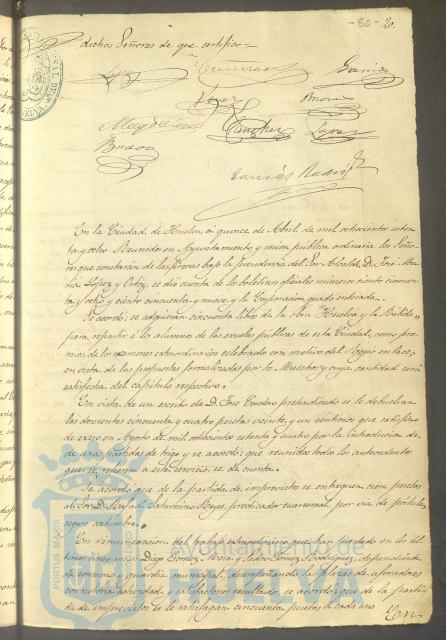 - 80 - 20.
dichos Señores de que certifico =
García
Perez
Sanchez Lopez
En la Ciudad de Huelva á quince de Abril de mil ochocientos seten
ta y ocho Reunido en Ayuntamiento y sesion publica ordinaria los Seño
res que constarán de las firmas bajo la presidencia del Sor Alcalde D. José Ma
ria Lopez y se dió cuenta de los boletines oficiales números ciento cincuen
ta y ocho y ciento cincuenta y nueve y la Corporacion quedó enterada.
Se acordó: se adquieran cincuenta libros de la obra Huelva y la Rábida
para repartir á los alumnos de las escuelas públicas de esta Ciudad, como pre
mios de los exámenes extraordinarios celebrados con motivo del Regio enlace,
en vista de las propuestas formalizadas por los Maestros y cuya cantidad será
satisfecha del capítulo respectivo.
En vista de un escrito de D. José pretendiendo se le devuelvan
las doscientas cincuenta y cuatro pesetas veinte y un céntimos que satisfizo
de exceso en Agosto de mil ochocientos setenta y cuatro por la introduccion de
de una partida de trigo y se acordó: que reunidos todos los antecedentes
que se refieran á este servicio, se dé cuenta.
Se acordó que de la partida de imprevistos se entreguen cien pesetas
al Sor D. Rafael Saturnino predicador cuaresmal, por via de
segun costumbre.
En remuneracion del trabajo extraordinario que han prestado en los úl
timos cinco meses Diego Gomez y Pedro Gomez Rodriguez, dependiente
de consumo y guardia municipal, desempeñando las plazas de aforadores
con notoria actividad y satisfactorio resultado, se acordó: que de la parti
da de imprevistos se le satisfagan cincuenta pesetas á cada uno
Ayuntamiento de Huelva
PORTUS MARIS